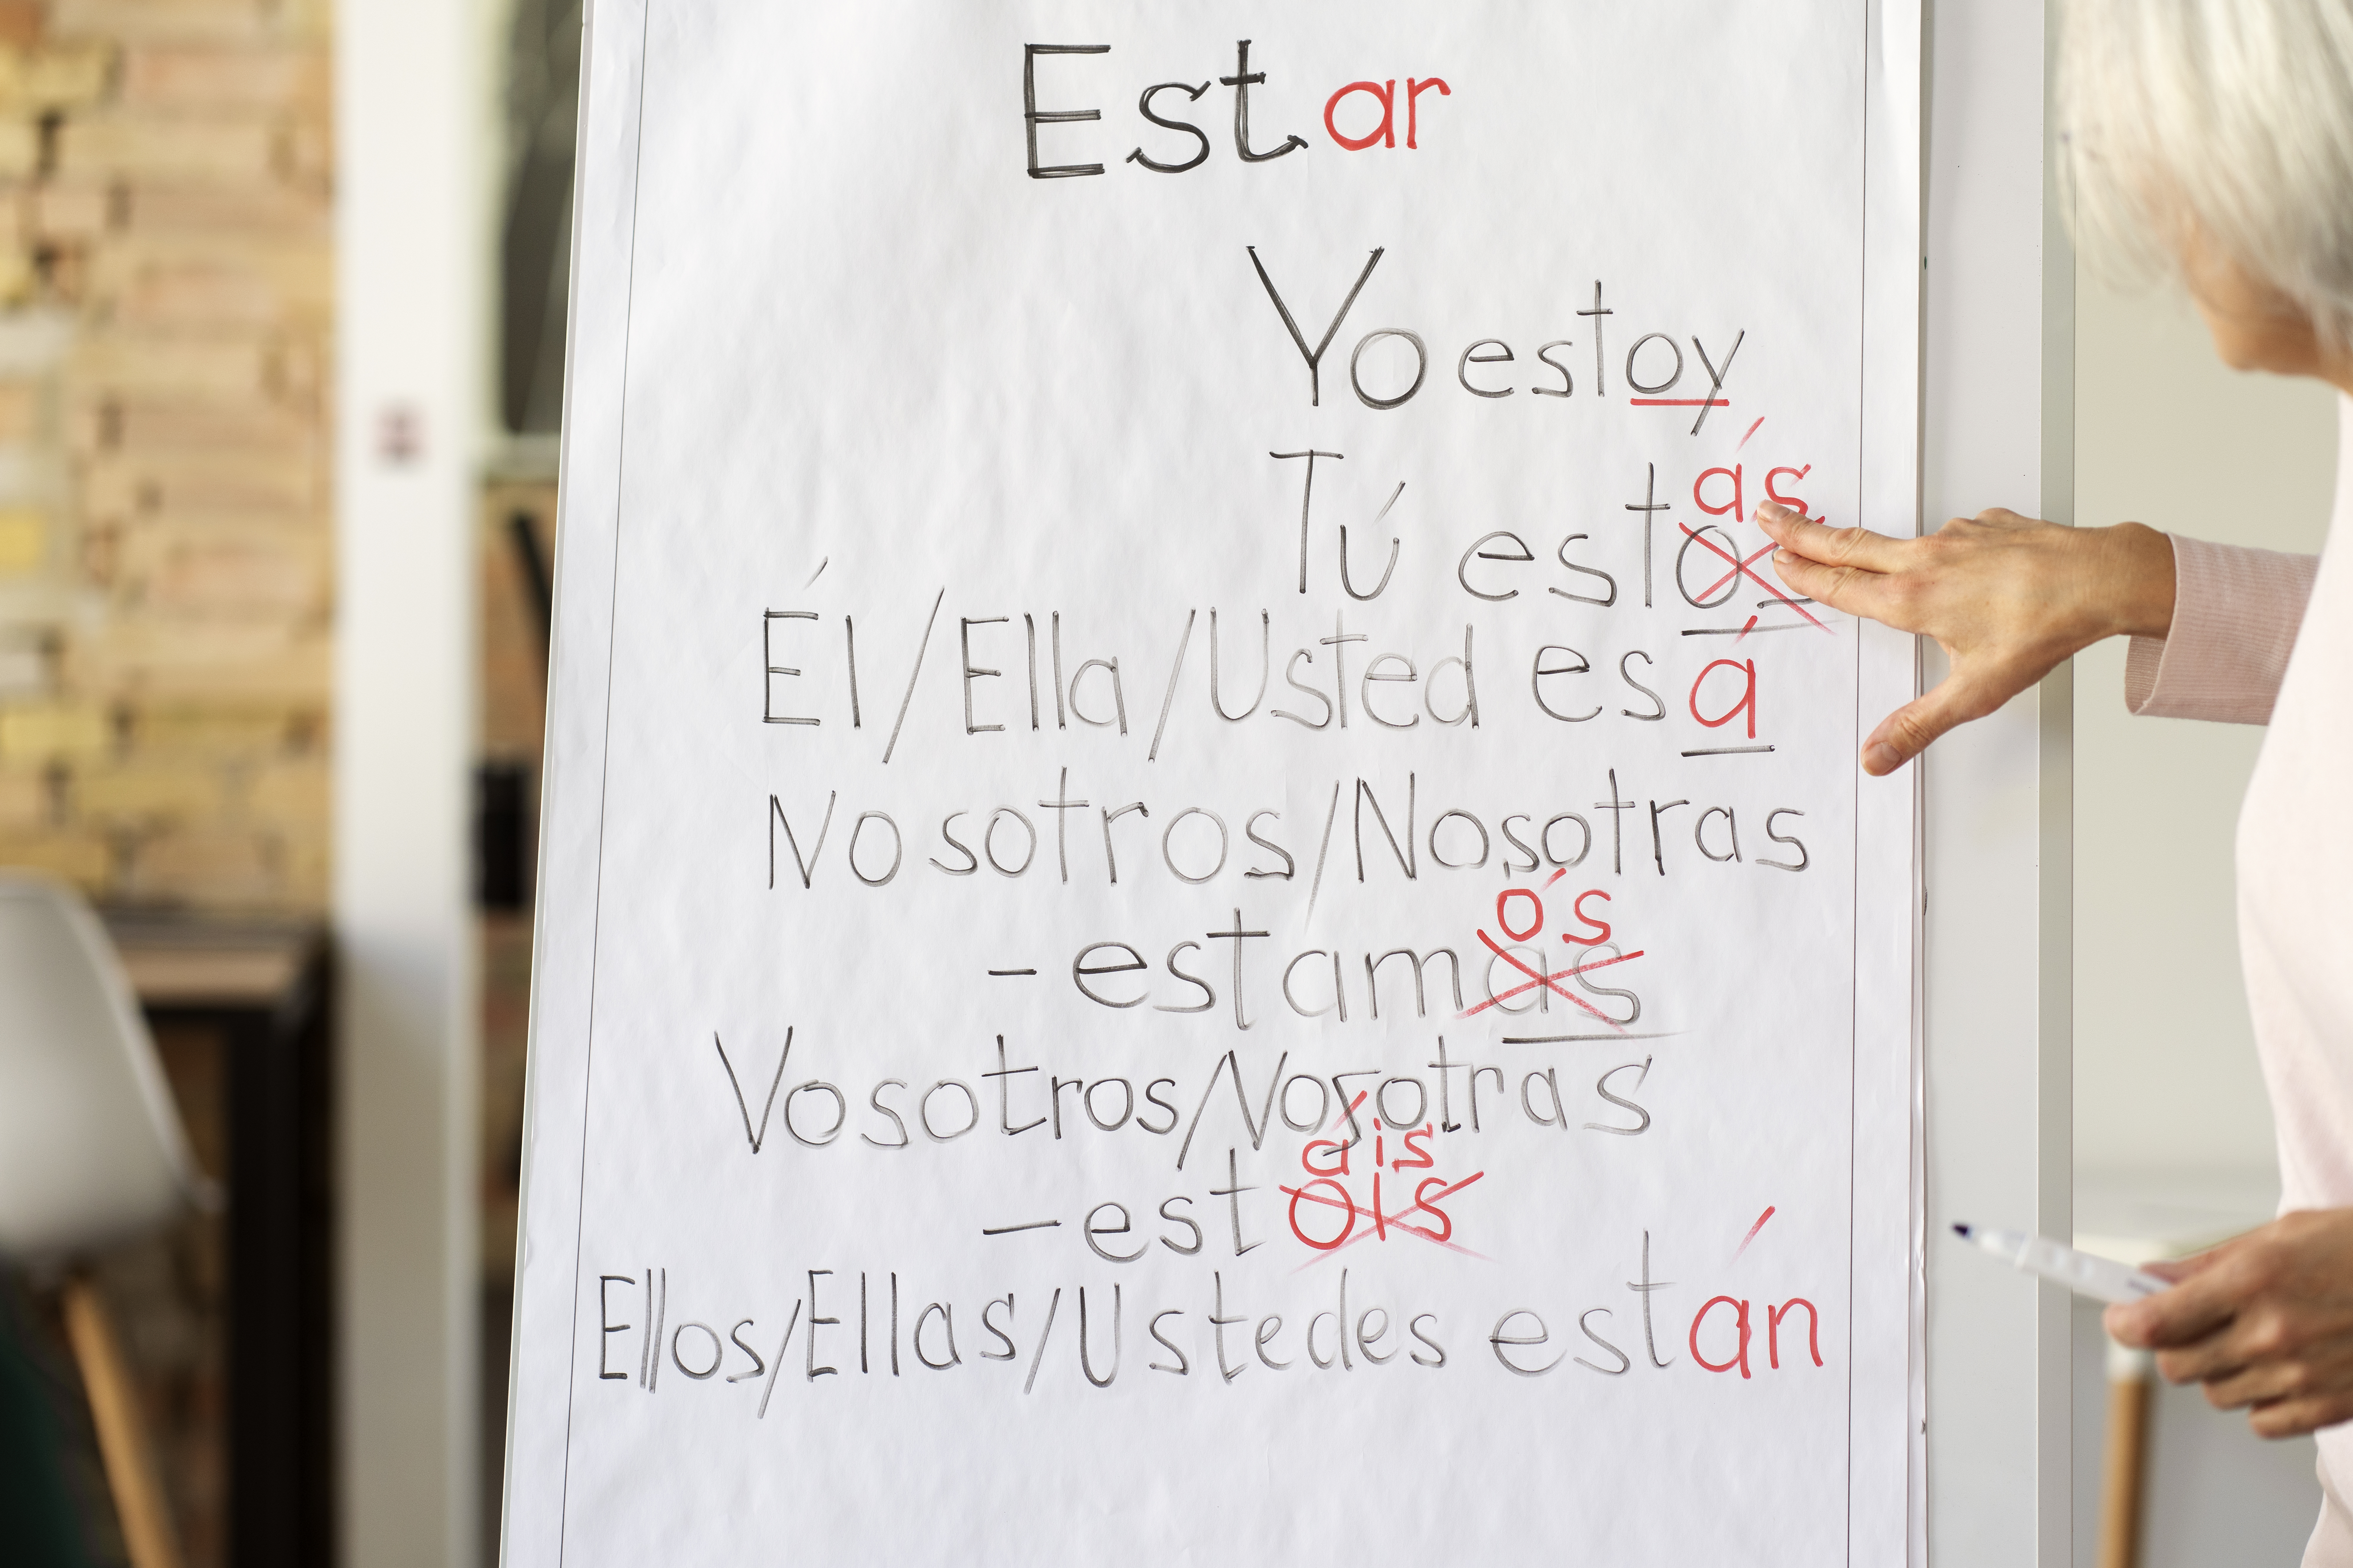 Estar
Yo estoy
ás
Tú estos
Él/Ella/Usted esá
Nosotros/Nosotras
ós
-estamas
Vosotros/Nosotras
áis
-estois
Ellos/Ellas/Ustedes están